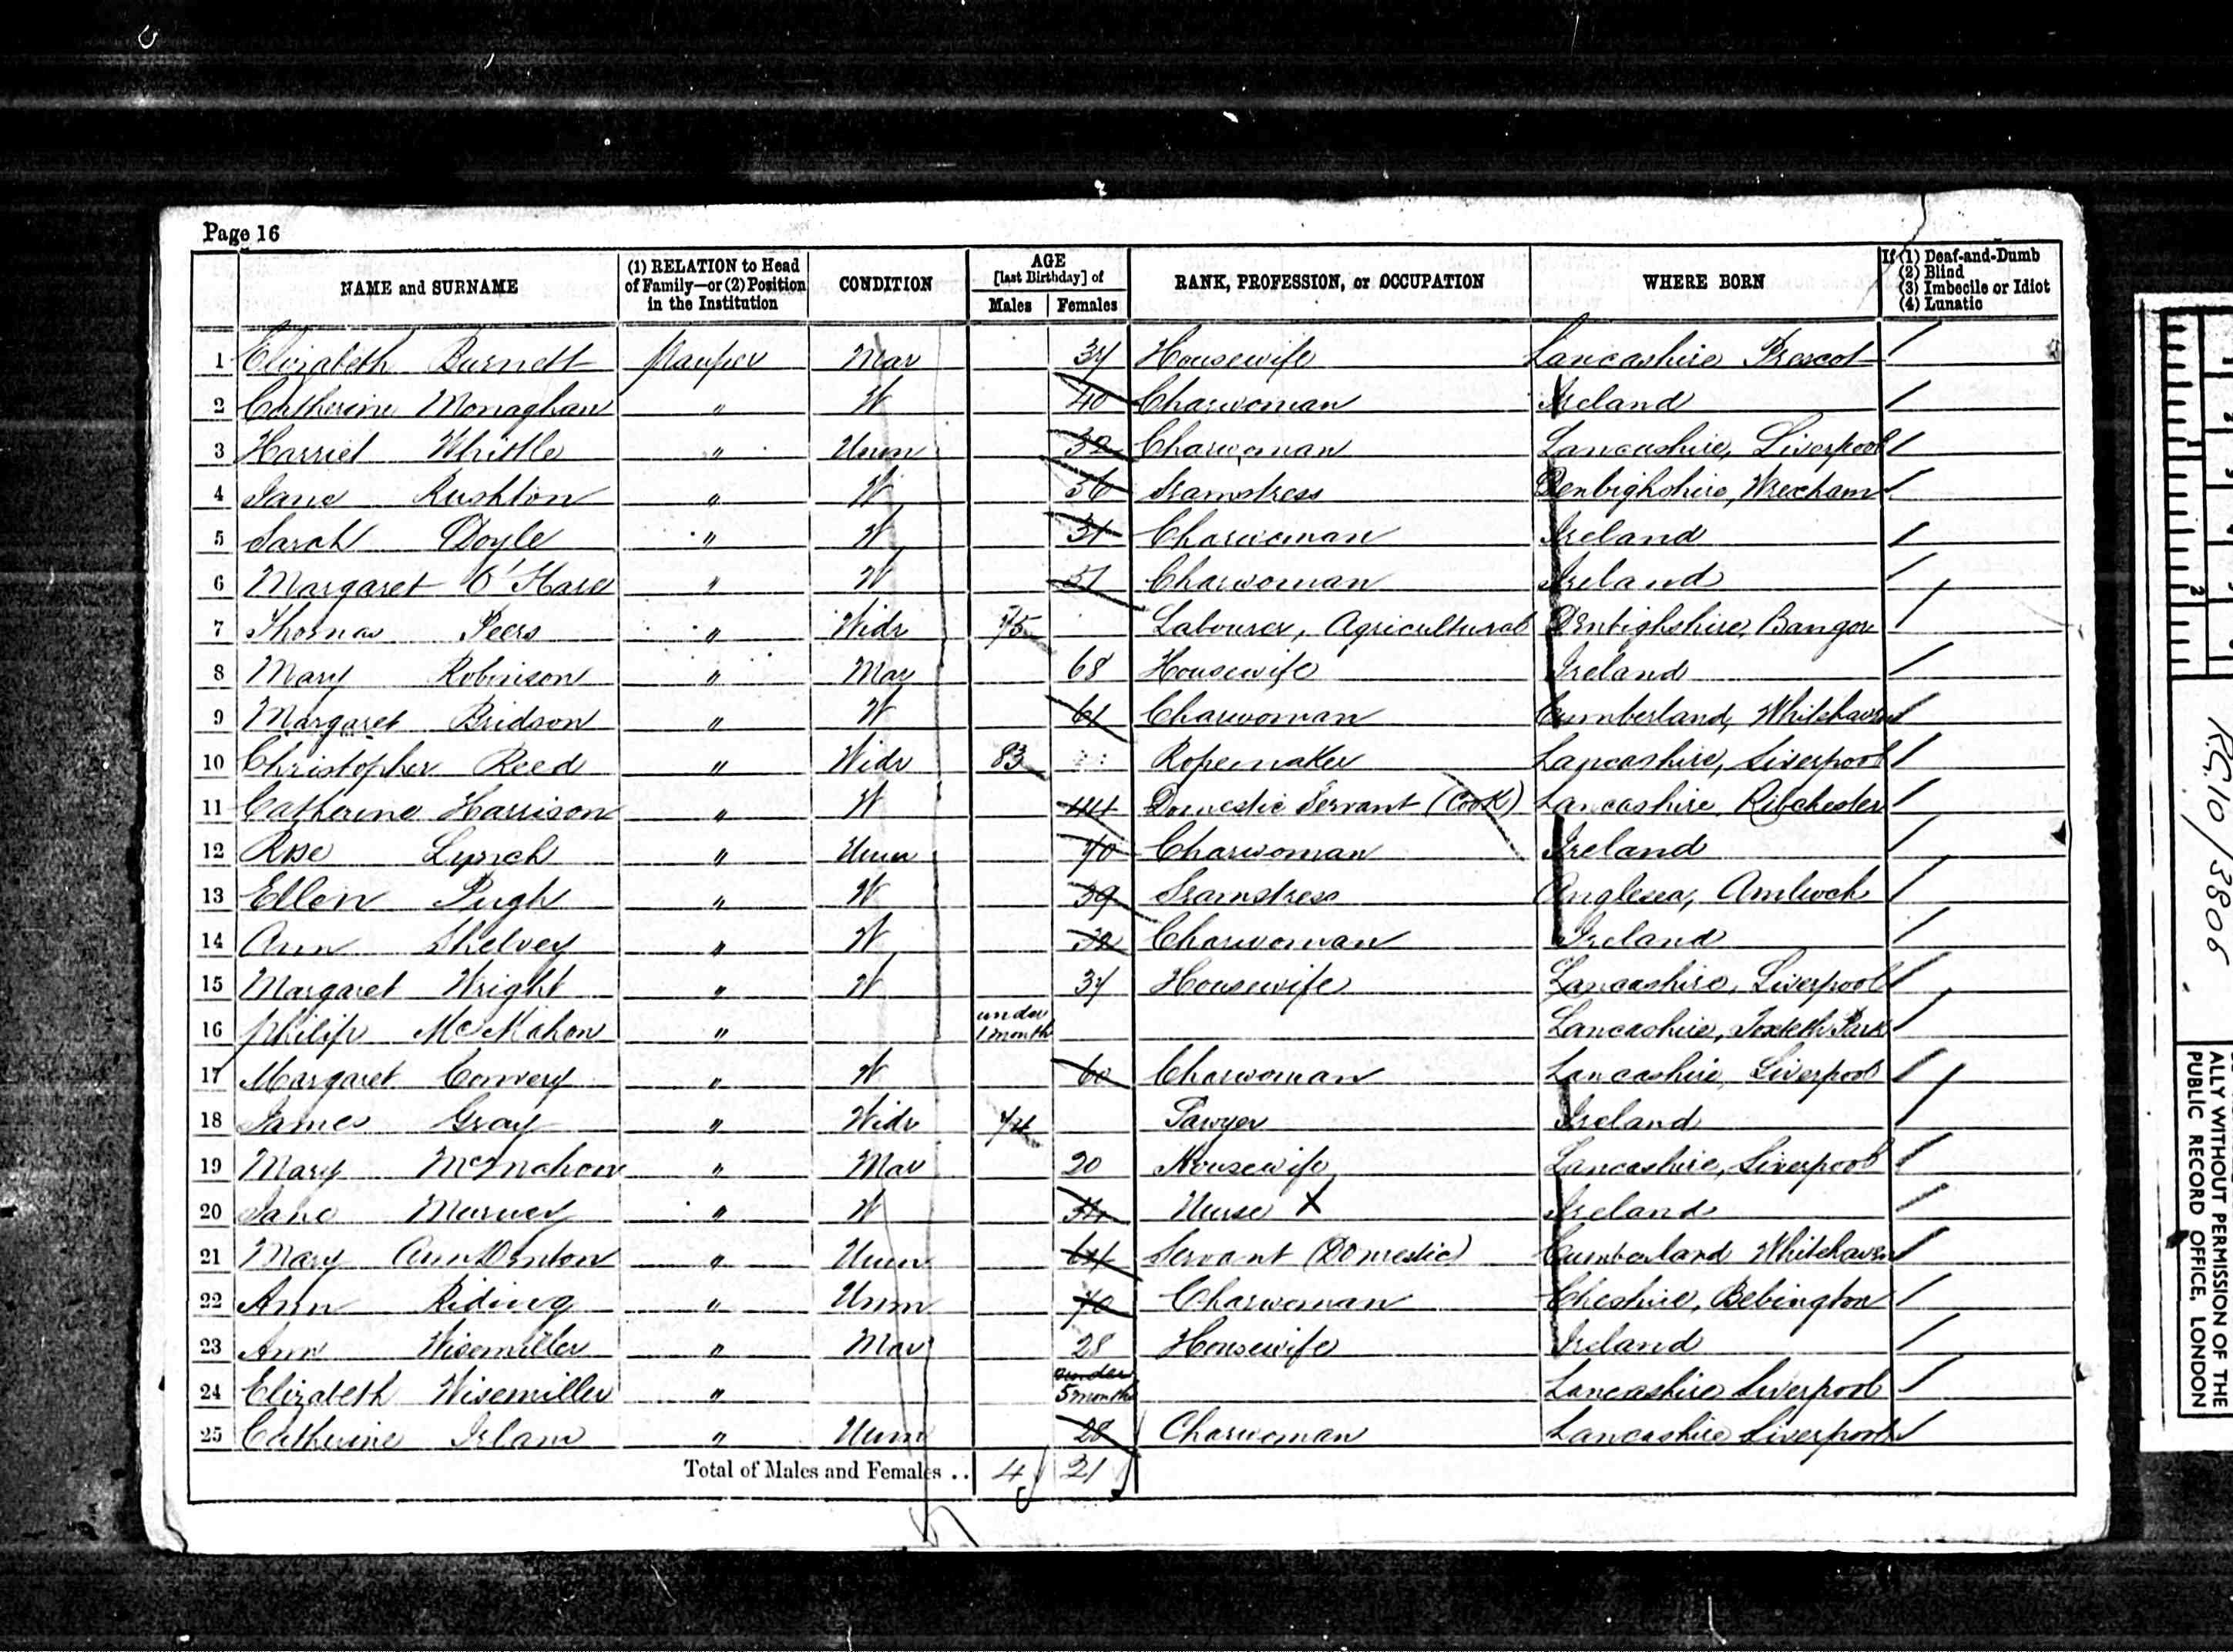 Page 16
NAME and SURNAME (1) RELATION to Head of Family—or (2) Position in the Institution CONDITION AGE [last Birthday] of Males Females RANK, PROFESSION, or OCCUPATION WHERE BORN If (1) Deaf-and-Dumb (2) Blind (3) Imbecile or Idiot (4) Lunatic
1 Elizabeth Burnett Pauper Mar 37 Housewife Lancashire Prescot
2 Catherine Monaghan " W 40 Charwoman Ireland
3 Harriet Whittle " Unm 32 Charwoman Lancashire, Liverpool
4 Jane Rushton " W 56 Seamstress Denbighshire, Wrexham
5 Sarah Doyle " W 31 Charwoman Ireland
6 Margaret O'Hare " W 51 Charwoman Ireland
7 Thomas Peers " Widr 75 Labourer, Agricultural Denbighshire, Bangor
8 Mary Robinson " Mar 68 Housewife Ireland
9 Margaret Bridson " W 61 Charwoman Cumberland, Whitehaven
10 Christopher Reed " Widr 83 Ropemaker Lancashire, Liverpool
11 Catherine Harrison " W 44 Domestic Servant (Cook) Lancashire, Ribchester
12 Rose Lynch " Unm 70 Charwoman Ireland
13 Ellen Pugh " W 39 Seamstress Anglesea, Amlwch
14 Ann Shelvey " W Charwoman Ireland
15 Margaret Wright " W 37 Housewife Lancashire, Liverpool
16 Philip McMahon " under 1 month Lancashire, Toxteth Park
17 Margaret Convery " W 60 Charwoman Lancashire, Liverpool
18 James Gray " Widr 74 Sawyer Ireland
19 Mary McMahon " Mar 20 Housewife Lancashire, Liverpool
20 Jane " W 34 Nurse X Ireland
21 Mary Ann Denton " Unm 64 Servant (Domestic) Cumberland Whitehaven
22 Ann Riding " Unm 70 Charwoman Cheshire, Bebington
23 Ann Wisemiller " Mar 28 Housewife Ireland
24 Elizabeth Wisemiller " under 5 months Lancashire Liverpool
25 Catherine Irlam " Unm 28 Charwoman Lancashire Liverpool
Total of Males and Females .. 4 21
R.G. 10/3806
ALLY WITHOUT PERMISSION OF THE
PUBLIC RECORD OFFICE, LONDON